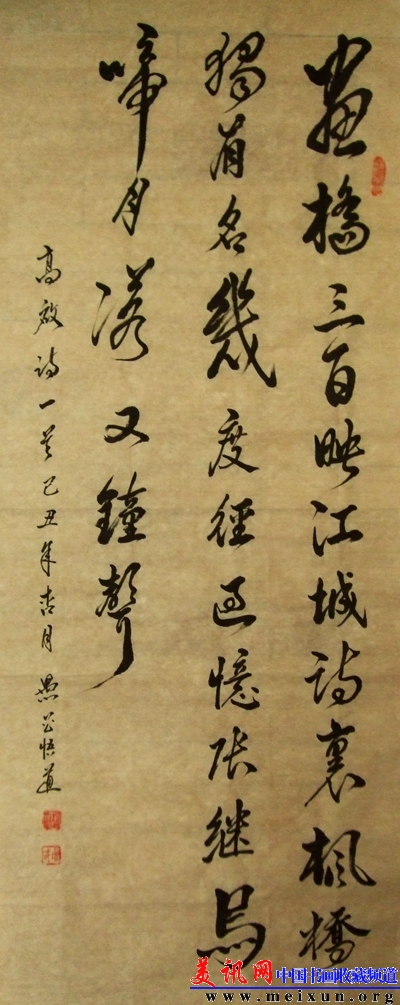 畫橋三百映江城詩裏楓橋
獨有名幾度徑過憶張继烏
啼月落又鐘聲
高啟詩一首己丑年吉月愚公悟道
美讯网 中国书画收藏频道
www.meixun.org